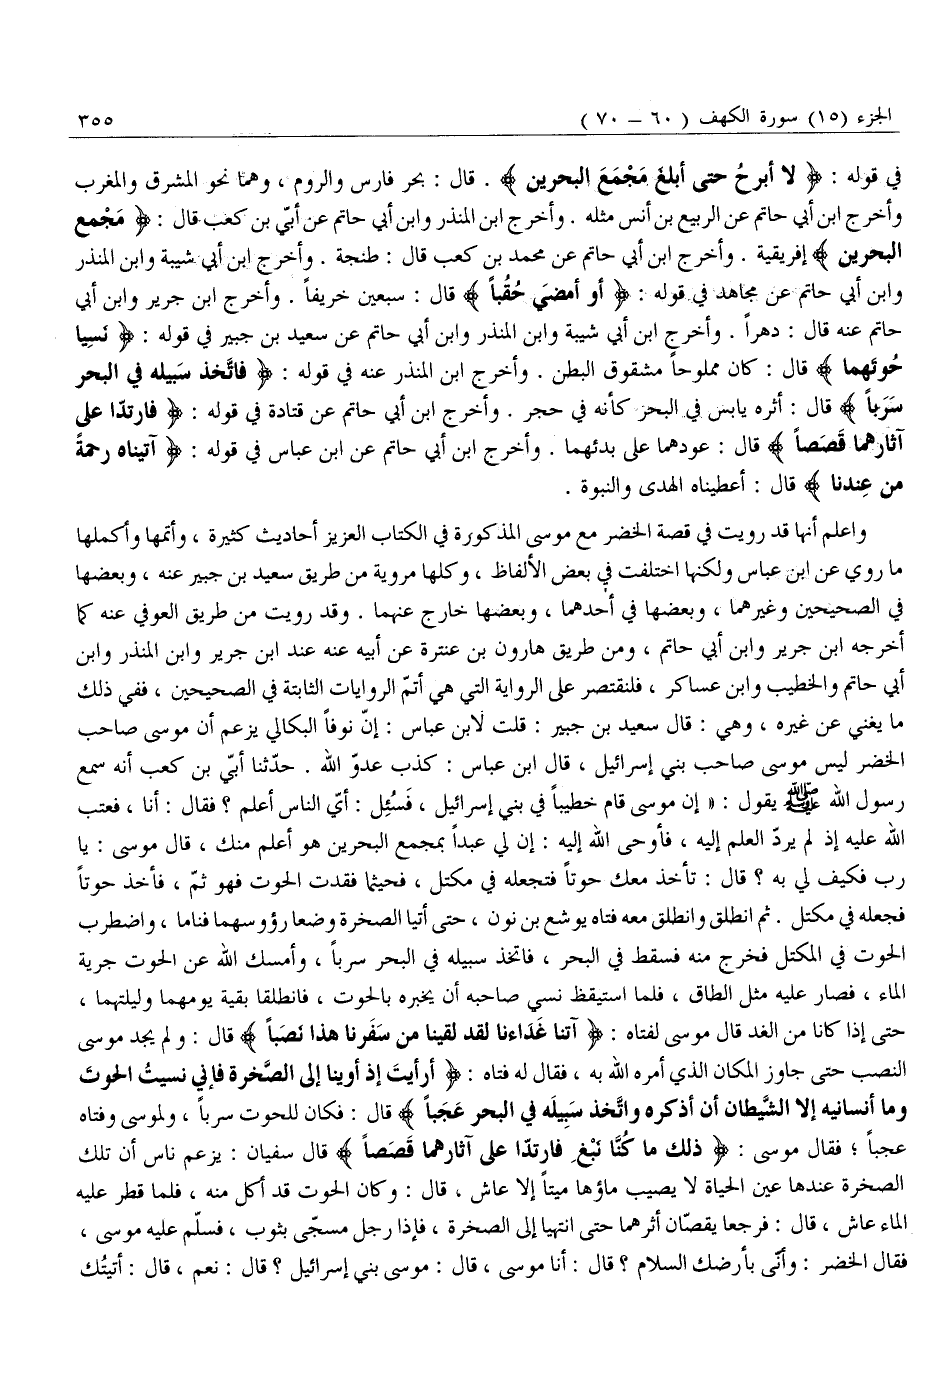 الجزء (١٥) سورة الكهف ( ٦٠ – ٧٠ ) ٣٥٥
في قوله : ﴿ لا أبرحُ حتى أبلغَ مَجْمَعَ البحرين ﴾ . قال : بحر فارس والروم ، وهما نحو المشرق والمغرب
وأخرج ابن أبي حاتم عن الربيع بن أنس مثله . وأخرج ابن المنذر وابن أبي حاتم عن أبيّ بن كعب قال : ﴿ مَجْمع
البحرين ﴾ إفريقية . وأخرج ابن أبي حاتم عن محمد بن كعب قال : طنجة . وأخرج ابن أبي شيبة وابن المنذر
وابن أبي حاتم عن مجاهد في قوله : ﴿ أو أمضيَ حُقُباً ﴾ قال : سبعين خريفاً . وأخرج ابن جرير وابن أبي
حاتم عنه قال : دهراً . وأخرج ابن أبي شيبة وابن المنذر وابن أبي حاتم عن سعيد بن جبير في قوله : ﴿ نَسِيا
حُوتَهما ﴾ قال : كان مملوحاً مشقوق البطن . وأخرج ابن المنذر عنه في قوله : ﴿ فاتَّخذ سَبيله في البحر
سَرَباً ﴾ قال : أثره يابس في البحر كأنه في حجر . وأخرج ابن أبي حاتم عن قتادة في قوله : ﴿ فارتدّا على
آثارهما قَصَصاً ﴾ قال : عودهما على بدئهما . وأخرج ابن أبي حاتم عن ابن عباس في قوله : ﴿ آتيناه رحمةً
من عِندنا ﴾ قال : أعطيناه الهدى والنبوة .
واعلم أنها قد رويت في قصة الخضر مع موسى المذكورة في الكتاب العزيز أحاديث كثيرة ، وأتمها وأكملها
ما روي عن ابن عباس ولكنها اختلفت في بعض الألفاظ ، وكلها مروية من طريق سعيد بن جبير عنه ، وبعضها
في الصحيحين وغيرهما ، وبعضها في أحدهما ، وبعضها خارج عنهما . وقد رويت من طريق العوفي عنه كما
أخرجه ابن جرير وابن أبي حاتم ، ومن طريق هارون بن عنترة عن أبيه عنه عند ابن جرير وابن المنذر وابن
أبي حاتم والخطيب وابن عساكر ، فلنقتصر على الرواية التي هي أتمّ الروايات الثابتة في الصحيحين ، ففي ذلك
ما يغني عن غيره ، وهي : قال سعيد بن جبير : قلت لابن عباس : إنّ نوفاً البكالي يزعم أن موسى صاحب
الخضر ليس موسى صاحب بني إسرائيل ، قال ابن عباس : كذب عدوّ الله . حدّثنا أبيّ بن كعب أنه سمع
رسول الله ﷺ يقول : « إن موسى قام خطيباً في بني إسرائيل ، فَسُئِل : أيّ الناس أعلم ؟ فقال : أنا ، فعتب
الله عليه إذ لم يردّ العلم إليه ، فأوحى الله إليه : إن لي عبداً بمجمع البحرين هو أعلم منك ، قال موسى : يا
رب فكيف لي به ؟ قال : تأخذ معك حوتاً فتجعله في مكتل ، فحيثما فقدت الحوت فهو ثمّ ، فأخذ حوتاً
فجعله في مكتل . ثم انطلق وانطلق معه فتاه يوشع بن نون ، حتى أتيا الصخرة وضعا رؤوسهما فناما ، واضطرب
الحوت في المكتل فخرج منه فسقط في البحر ، فاتخذ سبيله في البحر سرباً ، وأمسك الله عن الحوت جرية
الماء ، فصار عليه مثل الطاق ، فلما استيقظ نسي صاحبه أن يخبره بالحوت ، فانطلقا بقية يومهما وليلتهما ،
حتى إذا كانا من الغد قال موسى لفتاه : ﴿ آتنا غَدَاءنا لقد لقينا من سفَرنا هذا نَصَباً ﴾ قال : ولم يجد موسى
النصب حتى جاوز المكان الذي أمره الله به ، فقال له فتاه : ﴿ أرأيتَ إذ أوينا إلى الصَّخرة فإني نسيتُ الحوتَ
وما أنسانيه إلا الشَّيطان أن أذكره واتَّخذ سَبِيلَه في البحر عَجَباً ﴾ قال : فكان للحوت سرباً ، ولموسى وفتاه
عجباً ؛ فقال موسى : ﴿ ذلك ما كُنَّا نَبْغِ فارتدّا على آثارهما قَصَصاً ﴾ قال سفيان : يزعم ناس أن تلك
الصخرة عندها عين الحياة لا يصيب ماؤها ميتاً إلا عاش ، قال : وكان الحوت قد أكل منه ، فلما قطر عليه
الماء عاش ، قال : فرجعا يقصّان أثرهما حتى انتهيا إلى الصخرة ، فإذا رجل مسجّى بثوب ، فسلّم عليه موسى ،
فقال الخضر : وأنّى بأرضك السلام ؟ قال : أنا موسى ، قال : موسى بني إسرائيل ؟ قال : نعم ، قال : أتيتُك